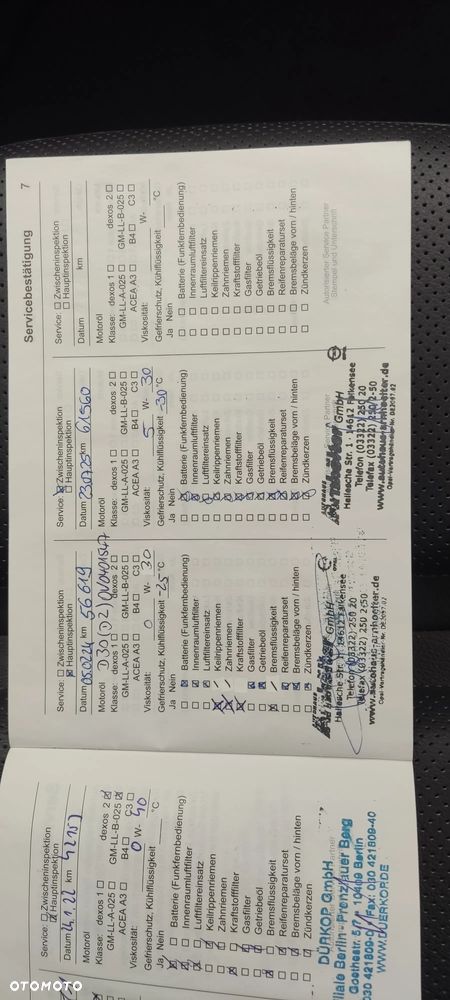 Servicebestätigung
7
Service: ☐ Zwischeninspektion
☒ Hauptinspektion
Datum 24.1.22 km 42153
Motoröl
Klasse: dexos 1 ☐ dexos 2 ☒
GM-LL-A-025 ☐ GM-LL-B-025 ☒
ACEA A3 ☐ B4 ☐ C3 ☐
Viskosität: 0 W- 40
Gefrierschutz, Kühlflüssigkeit °C
Ja Nein
Batterie (Funkfernbedienung)
Innenraumluftfilter
Luftfiltereinsatz
Keilrippenriemen
Zahnriemen
Kraftstofffilter
Gasfilter
Getriebeöl
Bremsflüssigkeit
Reifenreparaturset
Bremsbeläge vorn / hinten
Zündkerzen
DÜRKOP GmbH
Filiale Berlin-Prenzlauer Berg
Goethestr. 10409 Berlin
030 421809- Fax: 030 421809-40
WWW.DUERKOP.DE
Service: ☐ Zwischeninspektion
☒ Hauptinspektion
Datum 05.02.24 km 56619
Motoröl
Klasse: dexos 1 ☐ dexos 2 ☐
GM-LL-A-025 ☐ GM-LL-B-025 ☐
ACEA A3 ☐ B4 ☐ C3 ☐
Viskosität: 0 W- 30
Gefrierschutz, Kühlflüssigkeit -25 °C
Ja Nein
Batterie (Funkfernbedienung)
Innenraumluftfilter
Luftfiltereinsatz
Keilrippenriemen
Zahnriemen
Kraftstofffilter
Gasfilter
Getriebeöl
Bremsflüssigkeit
Reifenreparaturset
Bremsbeläge vorn / hinten
Zündkerzen
GmbH
Hallesche Str. 1 · 14612 Falkensee
Telefon (03322) 250 20
Telefax (03322) 250 2-50
www.autohaus-arnhoelter.de
Service: ☒ Zwischeninspektion
☐ Hauptinspektion
Datum 230725 km 61560
Motoröl
Klasse: dexos 1 ☐ dexos 2 ☐
GM-LL-A-025 ☐ GM-LL-B-025 ☐
ACEA A3 ☐ B4 ☐ C3 ☐
Viskosität: 5 W- 30
Gefrierschutz, Kühlflüssigkeit -30 °C
Ja Nein
Batterie (Funkfernbedienung)
Innenraumluftfilter
Luftfiltereinsatz
Keilrippenriemen
Zahnriemen
Kraftstofffilter
Gasfilter
Getriebeöl
Bremsflüssigkeit
Reifenreparaturset
Bremsbeläge vorn / hinten
Zündkerzen
GmbH
Hallesche Str. 1 · 14612 Falkensee
Telefon (03322) 250 20
Telefax (03322) 250 2-50
www.autohaus-arnhoelter.de
Service: ☐ Zwischeninspektion
☐ Hauptinspektion
Datum km
Motoröl
Klasse: dexos 1 ☐ dexos 2 ☐
GM-LL-A-025 ☐ GM-LL-B-025 ☐
ACEA A3 ☐ B4 ☐ C3 ☐
Viskosität: W-
Gefrierschutz, Kühlflüssigkeit °C
Ja Nein
☐ ☐ Batterie (Funkfernbedienung)
☐ ☐ Innenraumluftfilter
☐ ☐ Luftfiltereinsatz
☐ ☐ Keilrippenriemen
☐ ☐ Zahnriemen
☐ ☐ Kraftstofffilter
☐ ☐ Gasfilter
☐ ☐ Getriebeöl
☐ ☐ Bremsflüssigkeit
☐ ☐ Reifenreparaturset
☐ ☐ Bremsbeläge vorn / hinten
☐ ☐ Zündkerzen
Autorisierter Service Partner
Stempel und Unterschrift
OTOMOTO